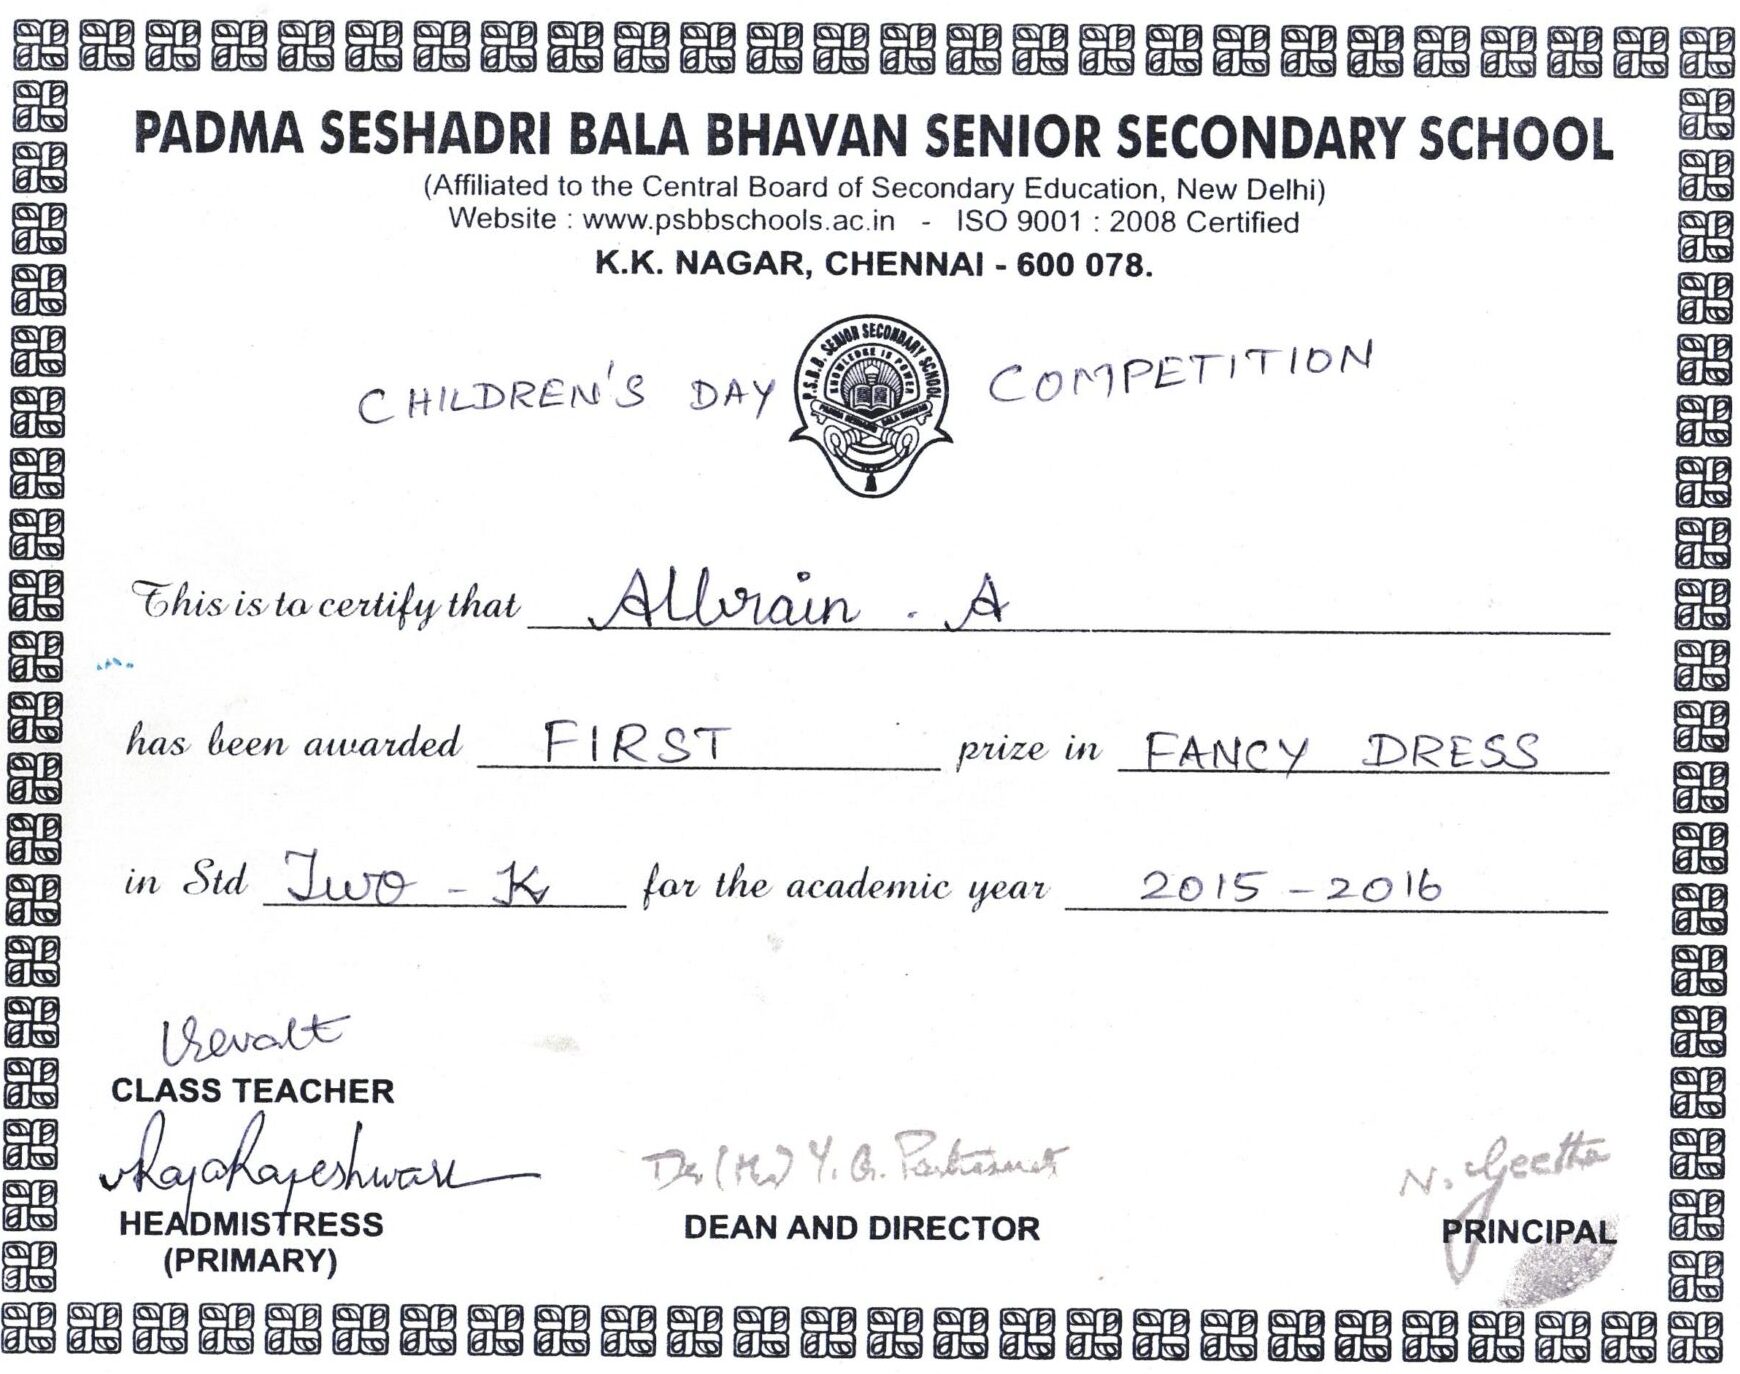 PADMA SESHADRI BALA BHAVAN SENIOR SECONDARY SCHOOL
(Affiliated to the Central Board of Secondary Education, New Delhi)
Website : www.psbbschools.ac.in - ISO 9001 : 2008 Certified
K.K. NAGAR, CHENNAI - 600 078.
P.S.B.B. SENIOR SECONDARY SCHOOL
KNOWLEDGE IS POWER
PADMA SESHADRI BALA BHAVAN
CHILDREN'S DAY COMPETITION
This is to certify that Allvrain . A
has been awarded FIRST prize in FANCY DRESS
in Std Two - K for the academic year 2015 - 2016
CLASS TEACHER
RajaRajeshwari
HEADMISTRESS
(PRIMARY)
Dr. (Mrs) Y. G. Parthasarathy
DEAN AND DIRECTOR
N. Geetha
PRINCIPAL